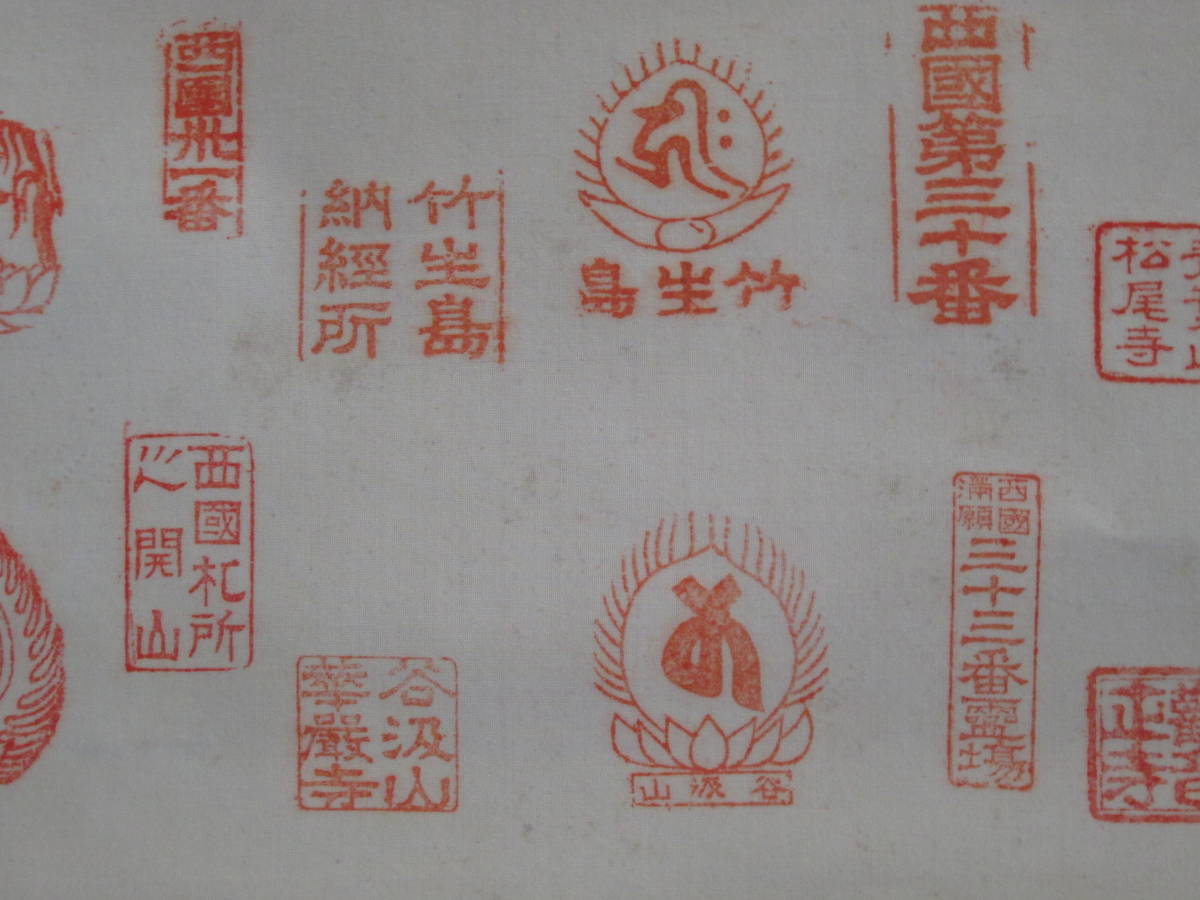 西國卅一番
竹生島
納經所
竹生島
西國第三十番
松尾寺
西國札所
心開山
谷汲山
華嚴寺
谷汲山
西國
満願
三十三番靈場